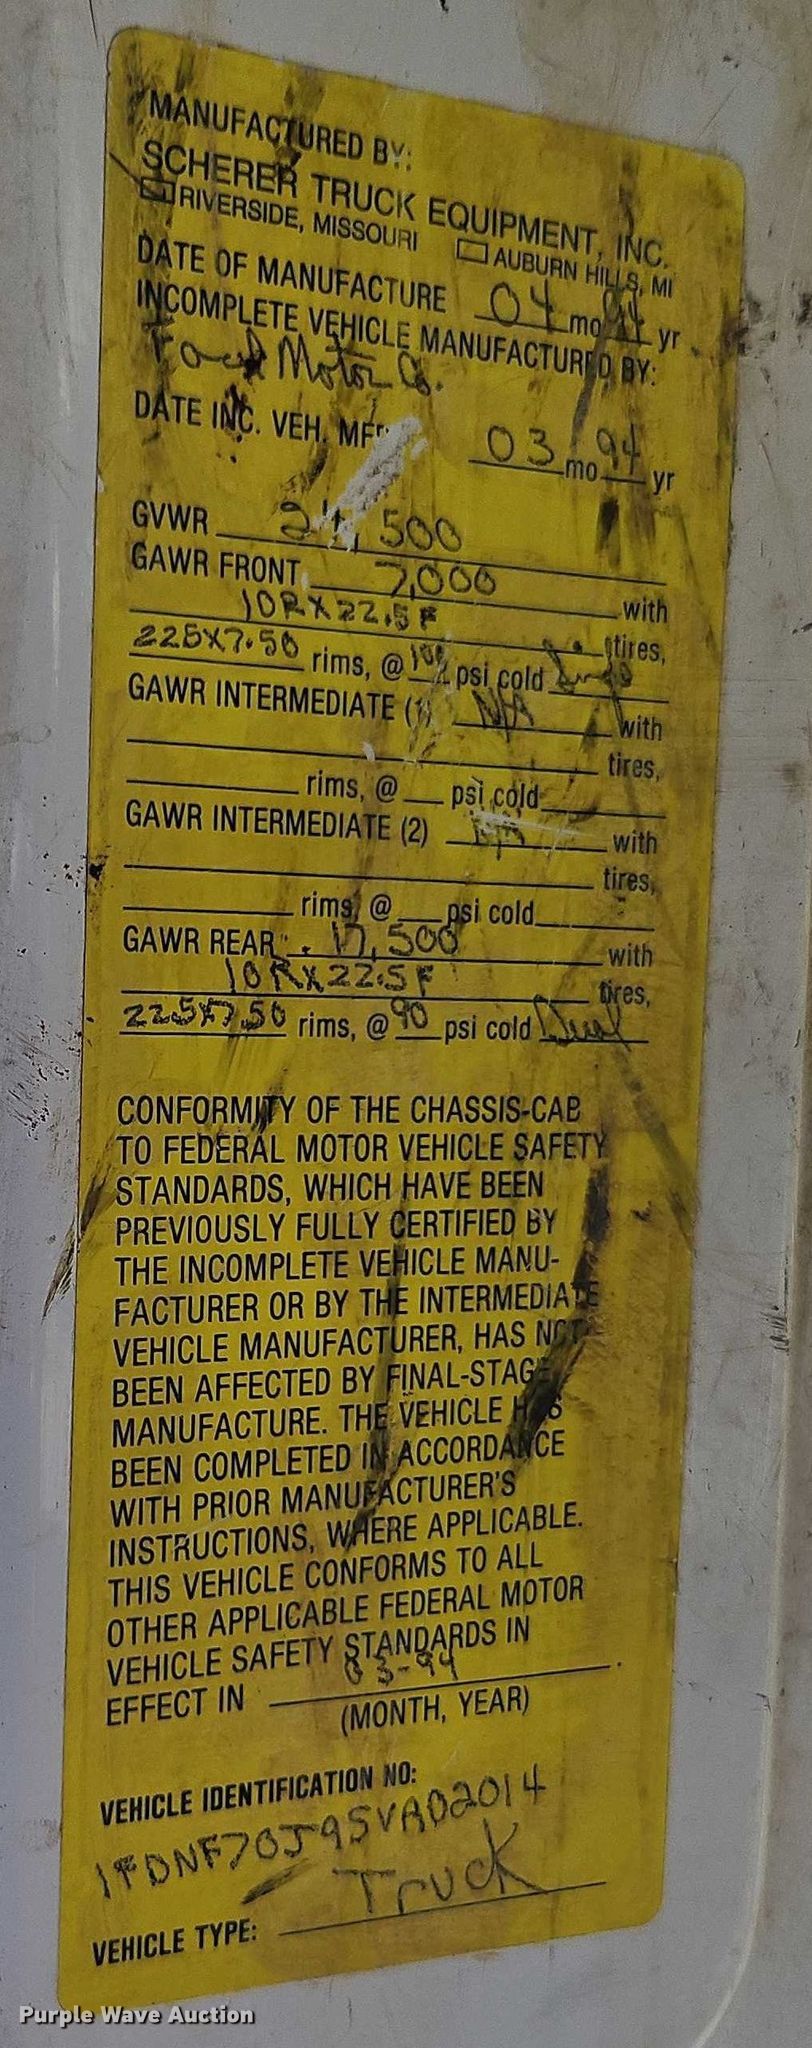 MANUFACTURED BY:
SCHERER TRUCK EQUIPMENT, INC.
RIVERSIDE, MISSOURI AUBURN HILLS, MI
DATE OF MANUFACTURE 04 mo 94 yr
INCOMPLETE VEHICLE MANUFACTURED BY:
Ford Motor Co.
DATE INC. VEH. MFD. 03 mo 94 yr
GVWR 24,500
GAWR FRONT 7,000 with
10RX22.5F tires,
225X7.50 rims, @ psi cold
GAWR INTERMEDIATE (1) N/A with
tires,
rims, @ psi cold
GAWR INTERMEDIATE (2) N/A with
tires,
rims, @ psi cold
GAWR REAR 17,500 with
10RX22.5F tires,
22.5X7.50 rims, @ 90 psi cold Dual
CONFORMITY OF THE CHASSIS-CAB
TO FEDERAL MOTOR VEHICLE SAFETY
STANDARDS, WHICH HAVE BEEN
PREVIOUSLY FULLY CERTIFIED BY
THE INCOMPLETE VEHICLE MANU-
FACTURER OR BY THE INTERMEDIATE
VEHICLE MANUFACTURER, HAS NOT
BEEN AFFECTED BY FINAL-STAGE
MANUFACTURE. THE VEHICLE HAS
BEEN COMPLETED IN ACCORDANCE
WITH PRIOR MANUFACTURER'S
INSTRUCTIONS, WHERE APPLICABLE.
THIS VEHICLE CONFORMS TO ALL
OTHER APPLICABLE FEDERAL MOTOR
VEHICLE SAFETY STANDARDS IN
EFFECT IN 03-94.
(MONTH, YEAR)
VEHICLE IDENTIFICATION NO:
1FDNF70J9SVA02014
VEHICLE TYPE: Truck
Purple Wave Auction